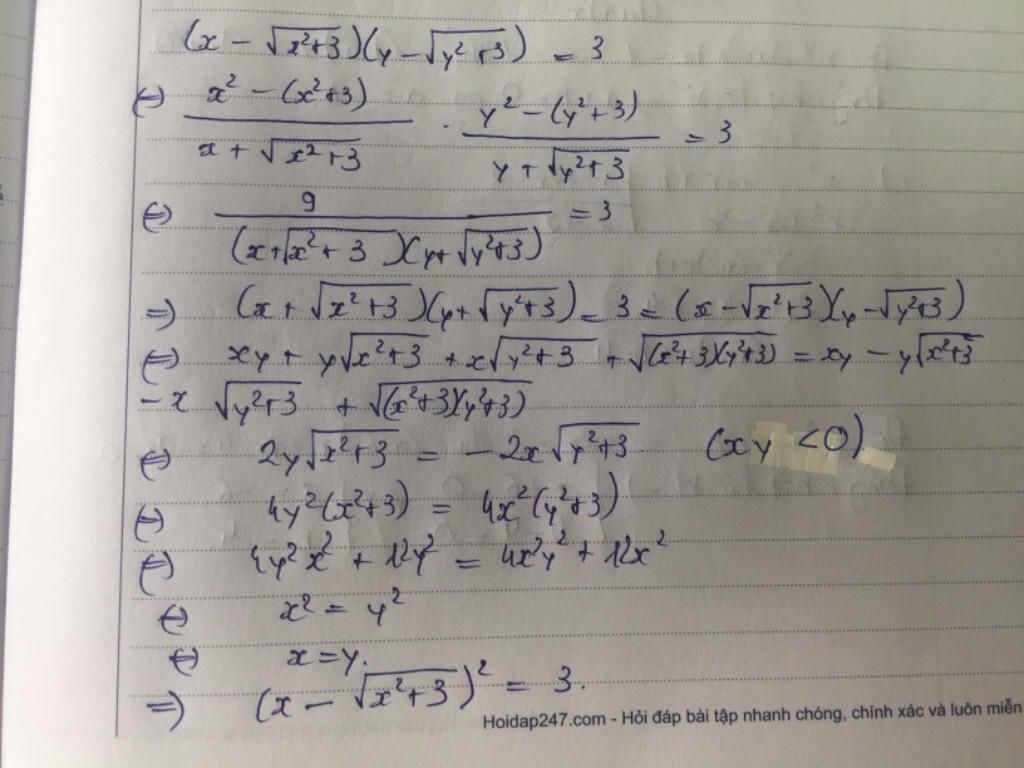 (x - √(x²+3))(y - √(y²+3)) = 3
⇔ (x² - (x²+3))/(x + √(x²+3)) · (y² - (y²+3))/(y + √(y²+3)) = 3
⇔ 9/((x+√(x²+3))(y+√(y²+3))) = 3
⇒ (x + √(x²+3))(y+√(y²+3)) = 3 = (x - √(x²+3))(y - √(y²+3))
⇔ xy + y√(x²+3) + x√(y²+3) + √((x²+3)(y²+3)) = xy - y√(x²+3)
- x √(y²+3) + √((x²+3)(y²+3))
⇔ 2y√(x²+3) = - 2x√(y²+3) (xy <0)
⇔ 4y²(x²+3) = 4x²(y²+3)
⇔ 4y²x² + 12y² = 4x²y² + 12x²
⇔ x² = y²
⇔ x = y.
⇒ (x - √(x²+3))² = 3.
Hoidap247.com - Hỏi đáp bài tập nhanh chóng, chính xác và luôn miễn